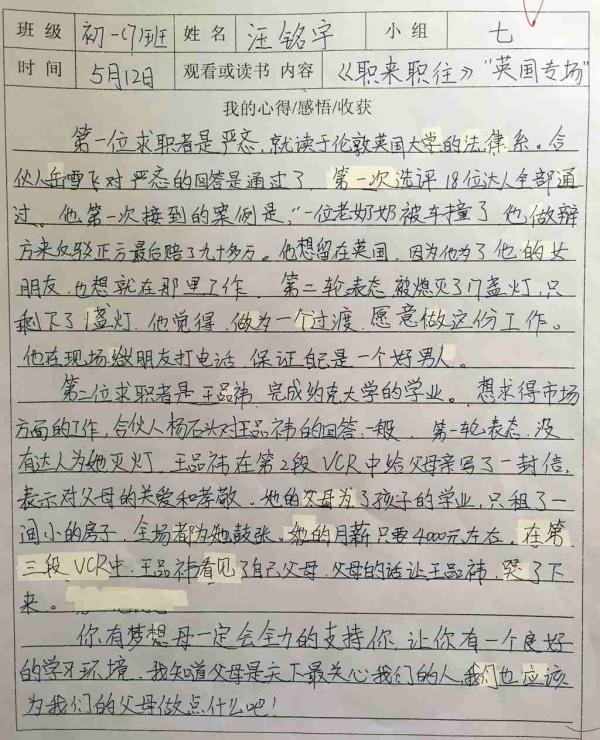 班级 初一(7)班 姓名 汪铭宇 小组 七
时间 5月12日 观看或读书 内容 《职来职往》"英国专场"
我的心得/感悟/收获
第一位求职者是严态,就读于伦敦英国大学的法律系。合
伙人岳雪飞对严态的回答是通过了 第一次选评18位达人全部通
过 他第一次接到的案例是,"一位老奶奶被车撞了 他做辩
方来反驳正方最后赔了九十多万。他想留在英国,因为他为了他的女
朋友,也想就在那里工作 第二轮表态 被熄灭了17盏灯,只
剩下了1盏灯,他觉得,做为一个过渡,愿意做这份工作。
他在现场给朋友打电话,保证自己是一个好男人。
第二位求职者是王品祎,完成约克大学的学业。想求得市场
方面的工作,合伙人杨石头对王品祎的回答一般,第一轮表态,没
有达人为她灭灯,王品祎在第2段VCR中给父母亲写了一封信,
表示对父母的关爱和孝敬。她的父母为了孩子的学业,只租了一
间小的房子,全场都为她鼓张。她的月薪只要4000元左右,在第
三段VCR中,王品祎看见了自己父母,父母的话让王品祎,哭了下
来。
你有梦想母一定会全力的支持你,让你有一个良好
的学习环境,我知道父母是天下最关心我们的人,我们也应该
为我们的父母做点什么吧!